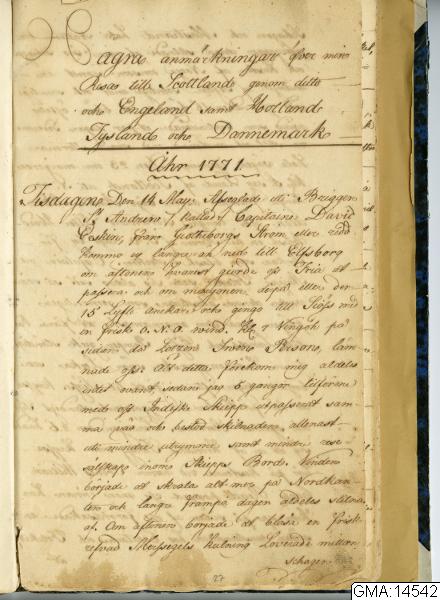 Några anmärkningar öfver min
Resa till Scottland genom ditto
och Engeland samt Holland
Tysland och Dannemark
Åhr 1771
Tisdagen Den 14 May Afseglade uti Briggen
St Andreu kallad Capitaine David
Erskin, från Giötheborgs Ström
kommo ej längre än ned till Elfsborg
om aftonen hvarest giorde oss fria at
passera och om morgonen derpå eller den
15 Lyfte anckare och gingo till Siöss med
en frisk O.N.O. wind. Kl: 7 Vingöh på
sidan då Lotzen Swens Persons, läm-
nade oss. Alt detta förekom mig aldeles
intet owant, sedan jag 6 gånger tilförene
med Ost Indiske Skiepp utpasserat sam-
ma väg och bestod skilnaden allenast
uti mindre utrymme samt mindre re-
salskap inom Skiepps Bord. Vinden
började at skrala alt mer på Nordkan-
ten och längre frampå dagen aldeles stilna
af. Om aftonen började at blåsa en frisk
refvad Merssegels Kulning Loverade mellan
Schagen
27
GMA:14542